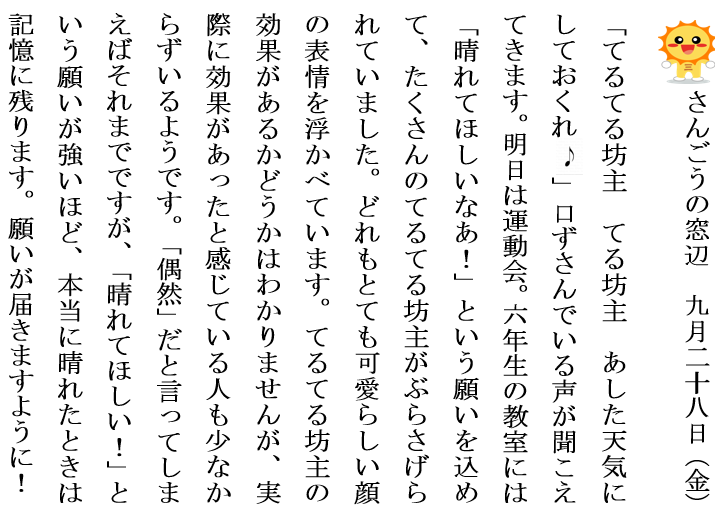 さんごうの窓辺　九月二十八日（金）
「てるてる坊主　てる坊主　あした天気に
しておくれ♪」口ずさんでいる声が聞こえ
てきます。明日は運動会。六年生の教室には
「晴れてほしいなあ！」という願いを込め
て、たくさんのてるてる坊主がぶらさげら
れていました。どれもとても可愛らしい顔
の表情を浮かべています。てるてる坊主の
効果があるかどうかはわかりませんが、実
際に効果があったと感じている人も少なか
らずいるようです。「偶然」だと言ってしま
えばそれまでですが、「晴れてほしい！」と
いう願いが強いほど、本当に晴れたときは
記憶に残ります。願いが届きますように！